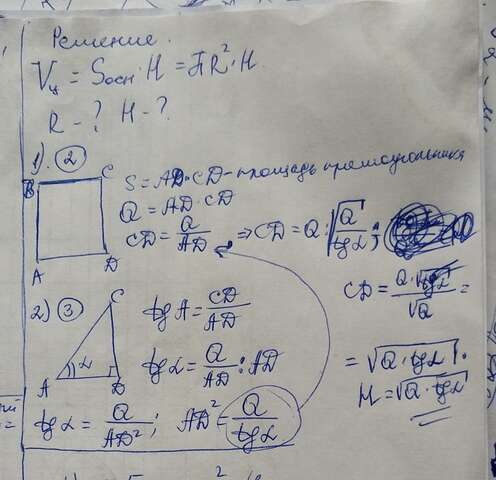 Решение.
Vц = Sосн · H = πR² · H.
R - ? H - ?
1). ②
B C
A D
S = AD · CD - площадь прямоугольника
Q = AD · CD
CD = Q/AD ⇒ CD = Q : √(Q/tgα);
CD = Q · √tgα / √Q =
= √(Q · tgα).
H = √(Q · tgα)
2) ③
C
A α D
tg A = CD/AD
tg α = Q/AD : AD
tg α = Q/AD²; AD² = Q/tgα